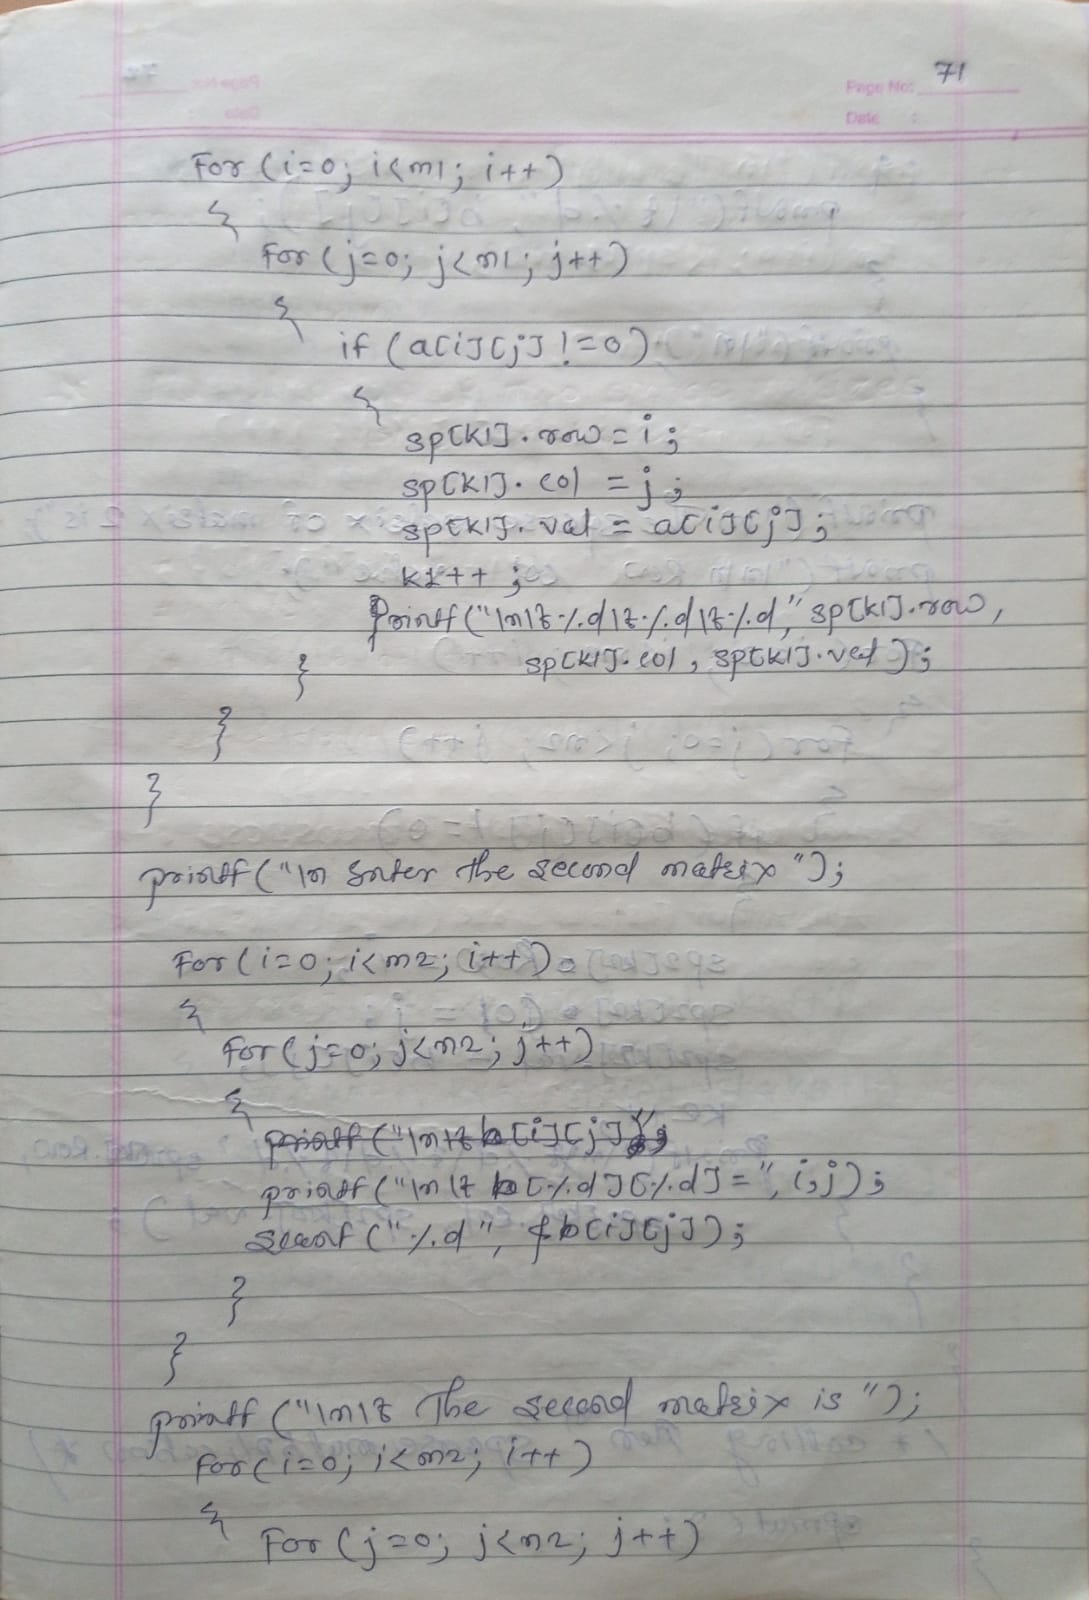 Page No: 71
Date :
For (i=0; i<m1; i++)
{
For (j=0; j<n1; j++)
{
if (a[i][j] !=0)
{
sp[k1].row = i;
sp[k1].col = j;
sp[k1].val = a[i][j];
k1++;
Printf("\n\t%d\t%d\t%d", sp[k1].row,
sp[k1].col, sp[k1].val);
}
}
}
printf("\n Enter the second matrix");
For (i=0; i<m2; i++)
{
For (j=0; j<n2; j++)
{
printf ("\n\t b[%d][%d]=", i,j);
scanf ("%d", &b[i][j]);
}
}
printf ("\n\t The second matrix is");
For (i=0; i<m2; i++)
{
For (j=0; j<n2; j++)